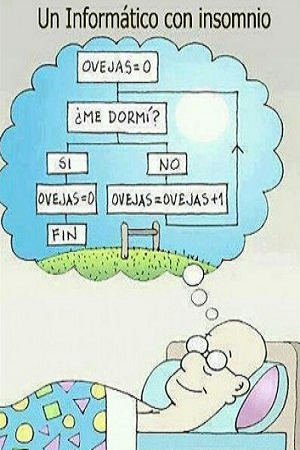 Un Informático con insomnio
OVEJAS=0
¿ME DORMÍ?
SI
NO
OVEJAS=0
OVEJAS=OVEJAS+1
FIN